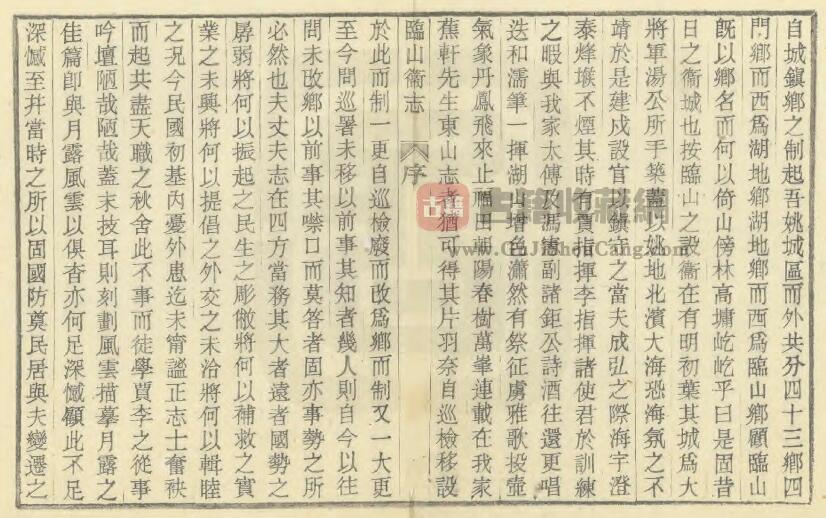 自城鎮鄉之制起吾姚城區而外共分四十三鄉四
門鄉而西爲湖地鄉湖地鄉而西爲臨山鄉顧臨山
旣以鄉名而何以倚山傍林高墉屹屹乎曰是固昔
日之衞城也按臨山之設衞在有明初葉其城爲大
將軍湯公所手築蓋以姚地北濱大海恐海氛之不
靖於是建戍設官以鎮守之當夫成弘之際海宇澄
泰烽堠不煙其時有賈指揮李指揮諸使君於訓練
之暇與我家太傅及馮憲副諸鉅公詩酒往還更唱
迭和濡筆一揮湖山增色瀟然有祭征虜雅歌投壺
氣象丹鳳飛來止福田朝陽春樹萬峯連載在我家
蕉軒先生東山志者猶可得其片羽奈自巡檢移設
臨山衞志 序
於此而制一更自巡檢廢而改爲鄉而制又一大更
至今問巡署未移以前事其知者幾人則自今以往
問未改鄉以前事其噤口而莫答者固亦事勢之所
必然也夫丈夫志在四方當務其大者遠者國勢之
孱弱將何以振起之民生之彫敝將何以補救之實
業之未興將何以提倡之外交之未洽將何以輯睦
之況今民國初基內憂外患迄未甯謐正志士奮袂
而起共盡天職之秋舍此不事而徒學賈李之從事
吟壇陋哉陋哉蓋末技耳則刻劃風雲描摹月露之
佳篇卽與月露風雲以俱杳亦何足深憾顧此不足
深憾至幷當時之所以固國防奠民居與夫變遷之
古籍
古籍收藏網
www.GuJiShouCang.com